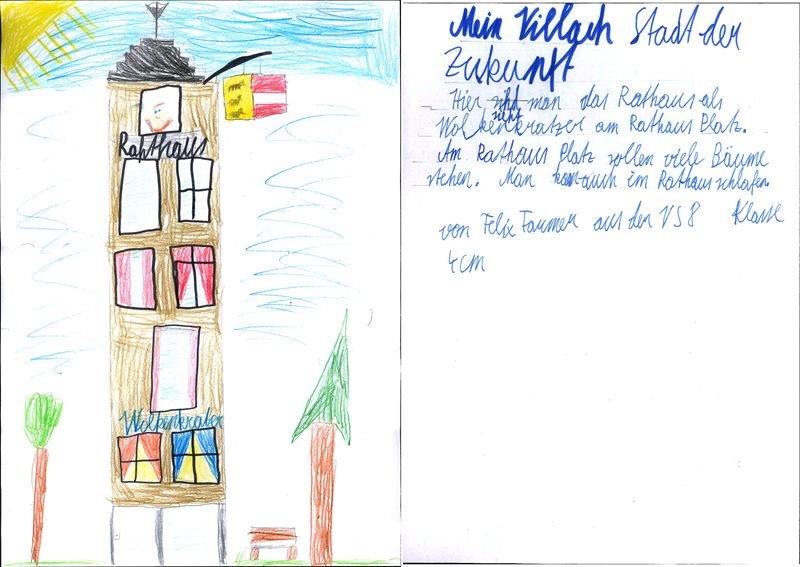 Rahthaus
Wolkenkratzer
Mein Villach Stadt der
Zukunft
Hier sieht man das Rathaus als
Wolkenkratzer am Rathaus Platz.
Am Rathaus Platz sollen viele Bäume
stehen. Man kann auch im Rathaus schlafen.
von Felix Farmer aus der VS 8 Klasse
4cm